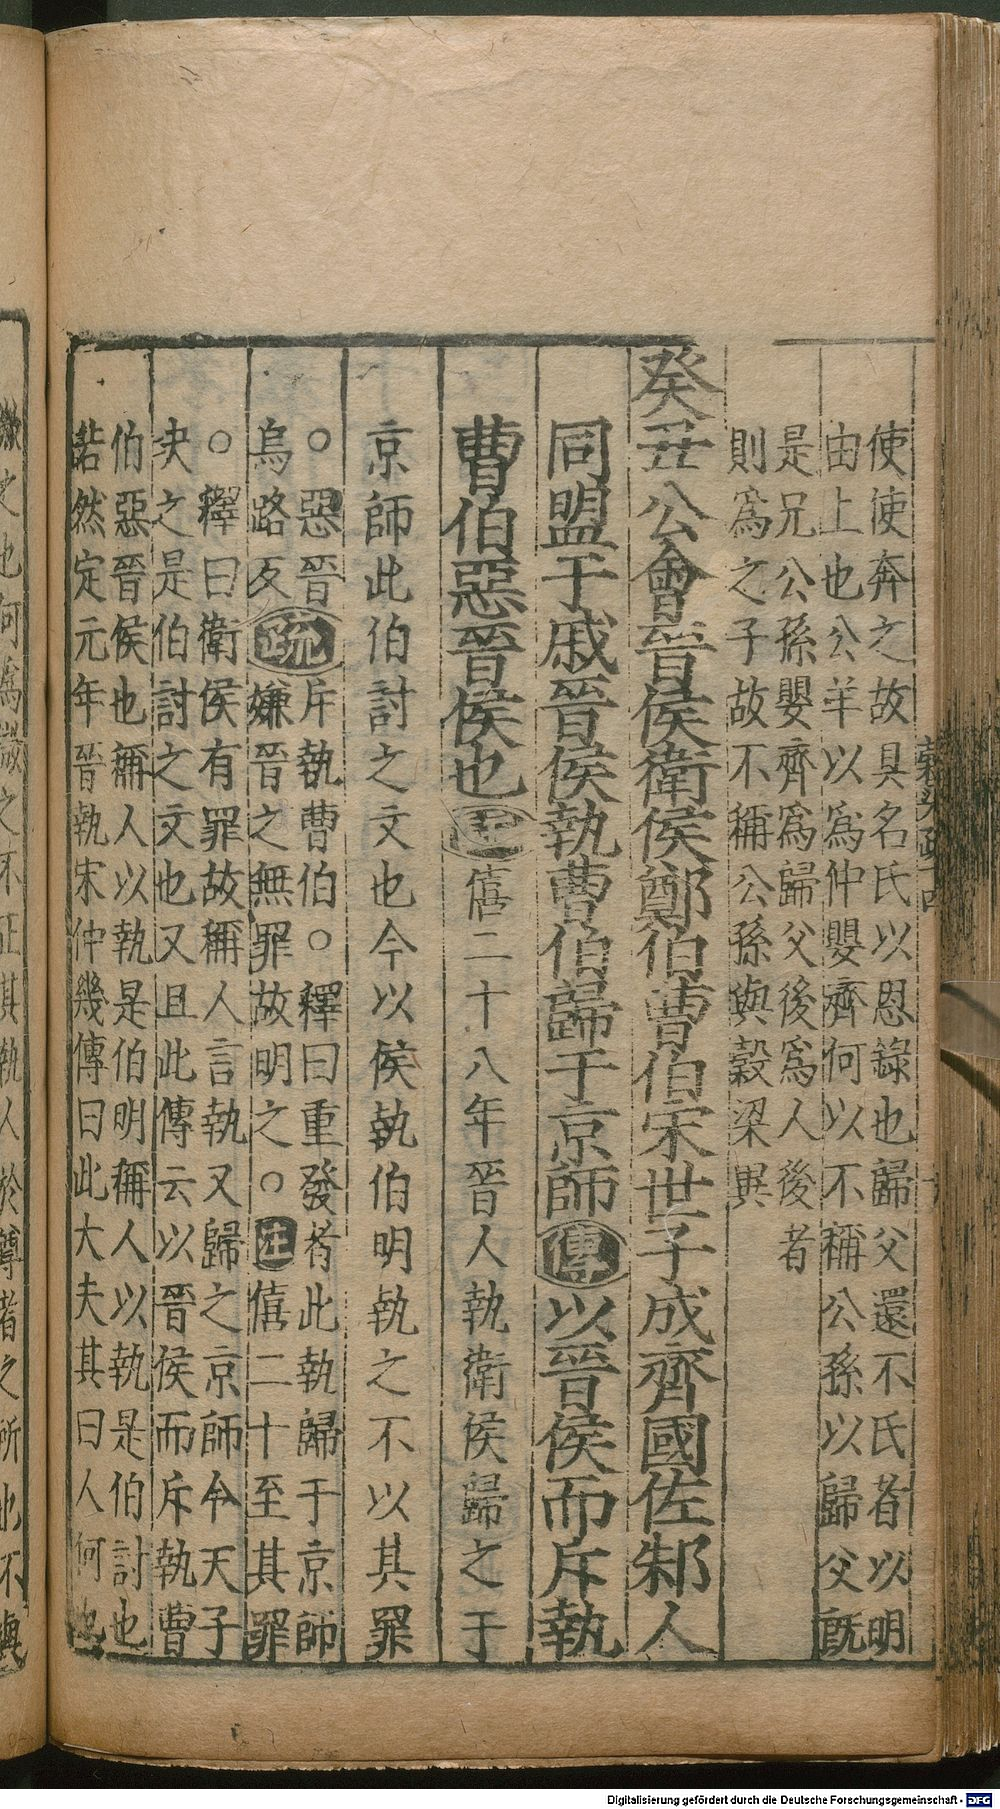 使使奔之故具名氏以恩録也歸父還不氏者以明
由上也公羊以爲仲嬰齊何以不稱公孫以歸父旣
是兄公孫嬰齊爲歸父後爲人後者
則爲之子故不稱公孫與穀梁異
癸丑公會晉侯衛侯鄭伯曹伯宋世子成齊國佐邾人
同盟于戚晉侯執曹伯歸于京師傳以晉侯而斥執
曹伯惡晉侯也注僖二十八年晉人執衛侯歸之于
京師此伯討之文也今以侯執伯明執之不以其罪
○惡晉疏斥執曹伯○釋曰重發者此執歸于京師
烏路反嫌晉之無罪故明之○注僖二十至其罪
○釋曰衛侯有罪故稱人言執又歸之京師今天子
夬之是伯討之文也又且此傳云以晉侯而斥執曹
伯惡晉侯也稱人以執是伯明稱人以執是伯討也
若然定元年晉執宋仲幾傳曰此大夫其曰人何也
微之也何爲微之不正其執人於尊者之所也不與
Digitalisierung gefördert durch die Deutsche Forschungsgemeinschaft - DFG